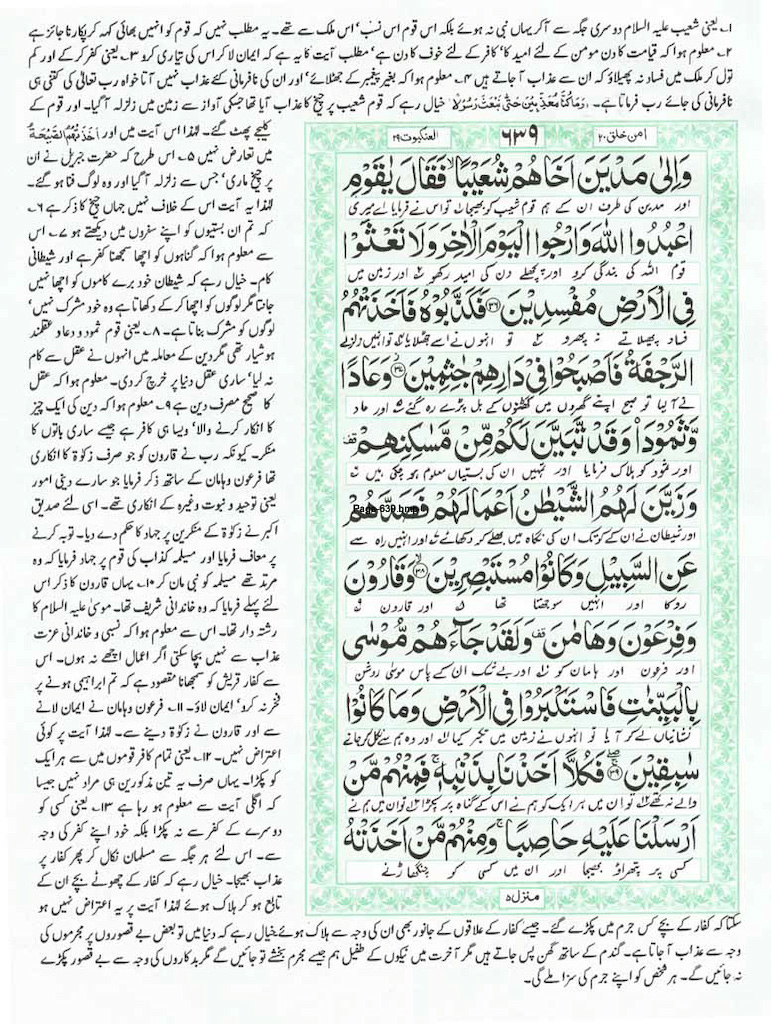 ۱۔ یعنی شعیب علیہ السلام دوسری جگہ سے آکر یہاں نبی نہ ہوئے بلکہ اس قوم اس نسب، اس ملک سے تھے۔ یہ مطلب نہیں کہ قوم کو انہیں بھائی کہہ کر پکارنا جائز ہے
۲۔ معلوم ہوا کہ قیامت کا دن مومن کے لئے امید کا، کافر کے لئے خوف کا دن ہے، مطلب آیت کا یہ ہے کہ ایمان لا کر اس کی تیاری کرو ۳۔ یعنی کفر کر کے اور کم
تول کر ملک میں فساد نہ پھیلاؤ کہ ان سے عذاب آ جاتے ہیں ۴۔ معلوم ہوا کہ بغیر پیغمبر کے جھٹلائے، اور ان کی نافرمانی کئے عذاب نہیں آتا خواہ رب تعالیٰ کی کتنی ہی
نافرمانی کی جائے رب فرماتا ہے۔ وَمَا كُنَّا مُعَذِّبِيْنَ حَتّٰى نَبْعَثَ رَسُوْلًا خیال رہے کہ قوم شعیب پر چیخ کا عذاب آیا تھا جسکی آواز سے زمین میں زلزلہ آگیا۔ اور قوم کے
کلیجے پھٹ گئے۔ لہٰذا اس آیت میں اور اَخَذَتْهُمُ الصَّيْحَةُ
میں تعارض نہیں ۵۔ اس طرح کہ حضرت جبریل نے ان
پر چیخ ماری، جس سے زلزلہ آگیا اور وہ لوگ فنا ہو گئے۔
لہٰذا یہ آیت اس کے خلاف نہیں جہاں چیخ کا ذکر ہے ۶۔
کہ تم ان بستیوں کو اپنے سفروں میں دیکھتے ہو ۷۔ اس
سے معلوم ہوا کہ گناہوں کو اچھا سمجھنا کفر ہے اور شیطانی
کام۔ خیال رہے کہ شیطان خود برے کاموں کو اچھا نہیں
جانتا مگر لوگوں کو اچھا کر کے دکھاتا ہے وہ خود مشرک نہیں،
لوگوں کو مشرک بناتا ہے۔ ۸۔ یعنی قوم ثمود و عاد عقلمند
ہوشیار تھی مگر دین کے معاملہ میں انہوں نے عقل سے کام
نہ لیا، ساری عقل دنیا پر خرچ کر دی۔ معلوم ہوا کہ عقل
کا صحیح مصرف دین ہے ۹۔ معلوم ہوا کہ دین کی ایک چیز
کا انکار کرنے والا، ویسا ہی کافر ہے جیسے ساری باتوں کا
منکر۔ کیونکہ رب نے قارون کو جو صرف زکوٰۃ کا انکاری
تھا فرعون و ہامان کے ساتھ ذکر فرمایا جو سارے دینی امور
یعنی توحید و نبوت وغیرہ کے انکاری تھے۔ اسی لئے صدیق
اکبر نے زکوٰۃ کے منکرین پر جہاد کا حکم دے دیا۔ توبہ کرنے
پر معاف فرمایا اور مسیلمہ کذاب کی قوم پر جہاد فرمایا کہ وہ
مرتد تھے مسیلمہ کو نبی مان کر ۱۰۔ یہاں قارون کا ذکر اس
لئے پہلے فرمایا کہ وہ خاندانی شریف تھا۔ موسیٰ علیہ السلام کا
رشتہ دار تھا۔ اس سے معلوم ہوا کہ نسبی و خاندانی عزت
عذاب سے نہیں بچا سکتی اگر اعمال اچھے نہ ہوں۔ اس
سے کفار قریش کو سمجھانا مقصود ہے کہ تم ابراہیمی ہونے پر
فخر نہ کرو، ایمان لاؤ۔ ۱۱۔ فرعون و ہامان نے ایمان لانے
سے اور قارون نے زکوٰۃ دینے سے۔ لہٰذا آیت پر کوئی
اعتراض نہیں۔ ۱۲۔ یعنی تمام کافر قوموں میں سے ہر ایک
کو پکڑا۔ یہاں صرف یہ تین مذکورین ہی مراد نہیں جیسا
کہ اگلی آیت سے معلوم ہو رہا ہے ۱۳۔ یعنی کسی کو
دوسرے کے کفر سے نہ پکڑا بلکہ خود اپنے کفر کی وجہ
سے۔ اس لئے ہر جگہ سے مسلمان نکال کر پھر کفار پر
عذاب بھیجا۔ خیال رہے کہ کفار کے چھوٹے بچے ان کے
تابع ہو کر ہلاک ہوئے لہٰذا آیت پر یہ اعتراض نہیں ہو
امن خلق ۲۰
۶۳۹
العنکبوت ۲۹
وَاِلٰى مَدْيَنَ اَخَاهُمْ شُعَيْبًا فَقَالَ يٰقَوْمِ
اور مدین کی طرف ان کے ہم قوم شعیب کو بھیجا تو اس نے فرمایا اے میری
اعْبُدُوا اللّٰهَ وَارْجُوا الْيَوْمَ الْاٰخِرَ وَلَا تَعْثَوْا
قوم اللہ کی بندگی کرو اور پچھلے دن کی امید رکھو اور زمین میں
فِى الْاَرْضِ مُفْسِدِيْنَ ۝۳۶ فَكَذَّبُوْهُ فَاَخَذَتْهُمُ
فساد پھیلاتے نہ پھرو تو انہوں نے اسے جھٹلایا تو انہیں زلزلے
الرَّجْفَةُ فَاَصْبَحُوْا فِىْ دَارِهِمْ جٰثِمِيْنَ ۝۳۷ وَعَادًا
نے آ لیا تو صبح اپنے گھروں میں گھٹنوں کے بل پڑے رہ گئے اور عاد
وَّثَمُوْدَا۟ وَقَدْ تَّبَيَّنَ لَكُمْ مِّنْ مَّسٰكِنِهِمْ
اور ثمود کو ہلاک فرمایا اور تمہیں ان کی بستیاں معلوم ہو چکی ہیں
وَزَيَّنَ لَهُمُ الشَّيْطٰنُ اَعْمَالَهُمْ فَصَدَّهُمْ
Page-639.bmp
اور شیطان نے ان کے کوتک ان کی نگاہ میں بھلے کر دکھائے اور انہیں راہ سے
عَنِ السَّبِيْلِ وَكَانُوْا مُسْتَبْصِرِيْنَ ۝۳۸ وَقَارُوْنَ
روکا اور انہیں سوجھتا تھا اور قارون
وَفِرْعَوْنَ وَهَامٰنَ وَلَقَدْ جَآءَهُمْ مُّوْسٰى
اور فرعون اور ہامان کو اور بے شک ان کے پاس موسیٰ روشن
بِالْبَيِّنٰتِ فَاسْتَكْبَرُوْا فِى الْاَرْضِ وَمَا كَانُوْا
نشانیاں لے کر آیا تو انہوں نے زمین میں تکبر کیا اور وہ ہم سے نکل کر جانے
سٰبِقِيْنَ ۝۳۹ فَكُلًّا اَخَذْنَا بِذَنْۢبِهٖ فَمِنْهُمْ مَّنْ
والے نہ تھے تو ان میں ہر ایک کو ہم نے اس کے گناہ پر پکڑا تو ان میں ہم نے
اَرْسَلْنَا عَلَيْهِ حَاصِبًا وَمِنْهُمْ مَّنْ اَخَذَتْهُ
کسی پر پتھراؤ بھیجا اور ان میں کسی کو چنگھاڑ نے
منزل ۵
سکتا کہ کفار کے بچے کس جرم میں پکڑے گئے۔ جیسے کفار کے علاقوں کے جانور بھی ان کی وجہ سے ہلاک ہوئے خیال رہے کہ دنیا میں تو بعض بے قصوروں پر مجرموں کی
وجہ سے عذاب آ جاتا ہے۔ گندم کے ساتھ گھن پس جاتے ہیں مگر آخرت میں نیکوں کے طفیل ہم جیسے مجرم بخشے تو جائیں گے مگر بدکاروں کی وجہ سے بے قصور پکڑے
نہ جائیں گے۔ ہر شخص کو اپنے جرم کی سزا ملے گی۔